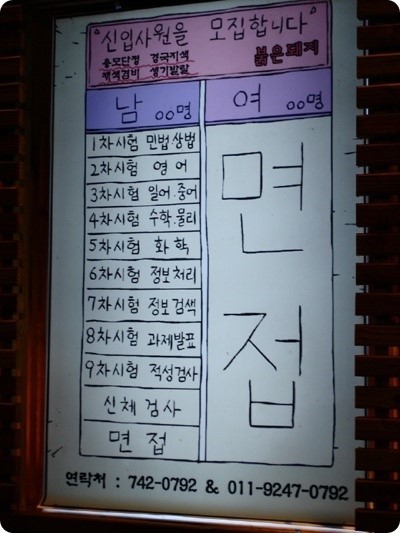 "신입사원을 모집합니다"
용모단정 경국지색
재색겸비 생기발랄
붉은돼지
남 00명
여 00명
1차시험 민법상법
2차시험 영어
3차시험 일어.중어
4차시험 수학.물리
5차시험 화학
6차시험 정보처리
7차시험 정보검색
8차시험 과제발표
9차시험 적성검사
신체검사
면접
면접
연락처 : 742-0792 & 011-9247-0792